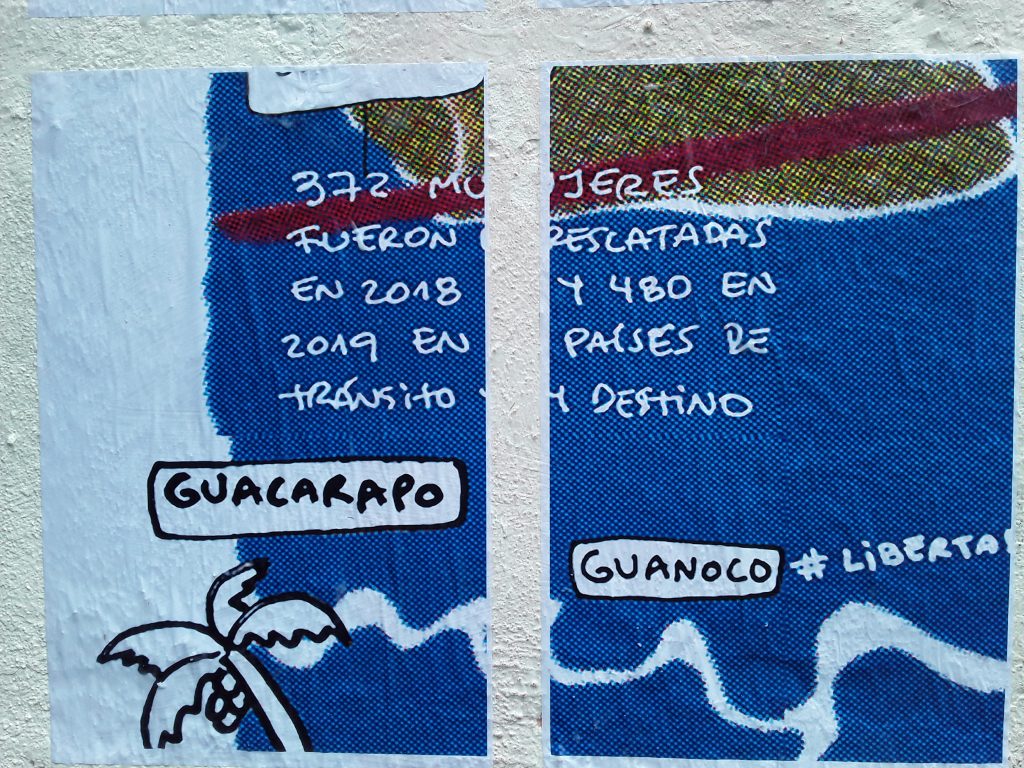 372 MUJERES
FUERON RESCATADAS
EN 2018 Y 480 EN
2019 EN PAÍSES DE
TRÁNSITO Y DESTINO
GUACARAPO
GUANOCO #LIBERTA